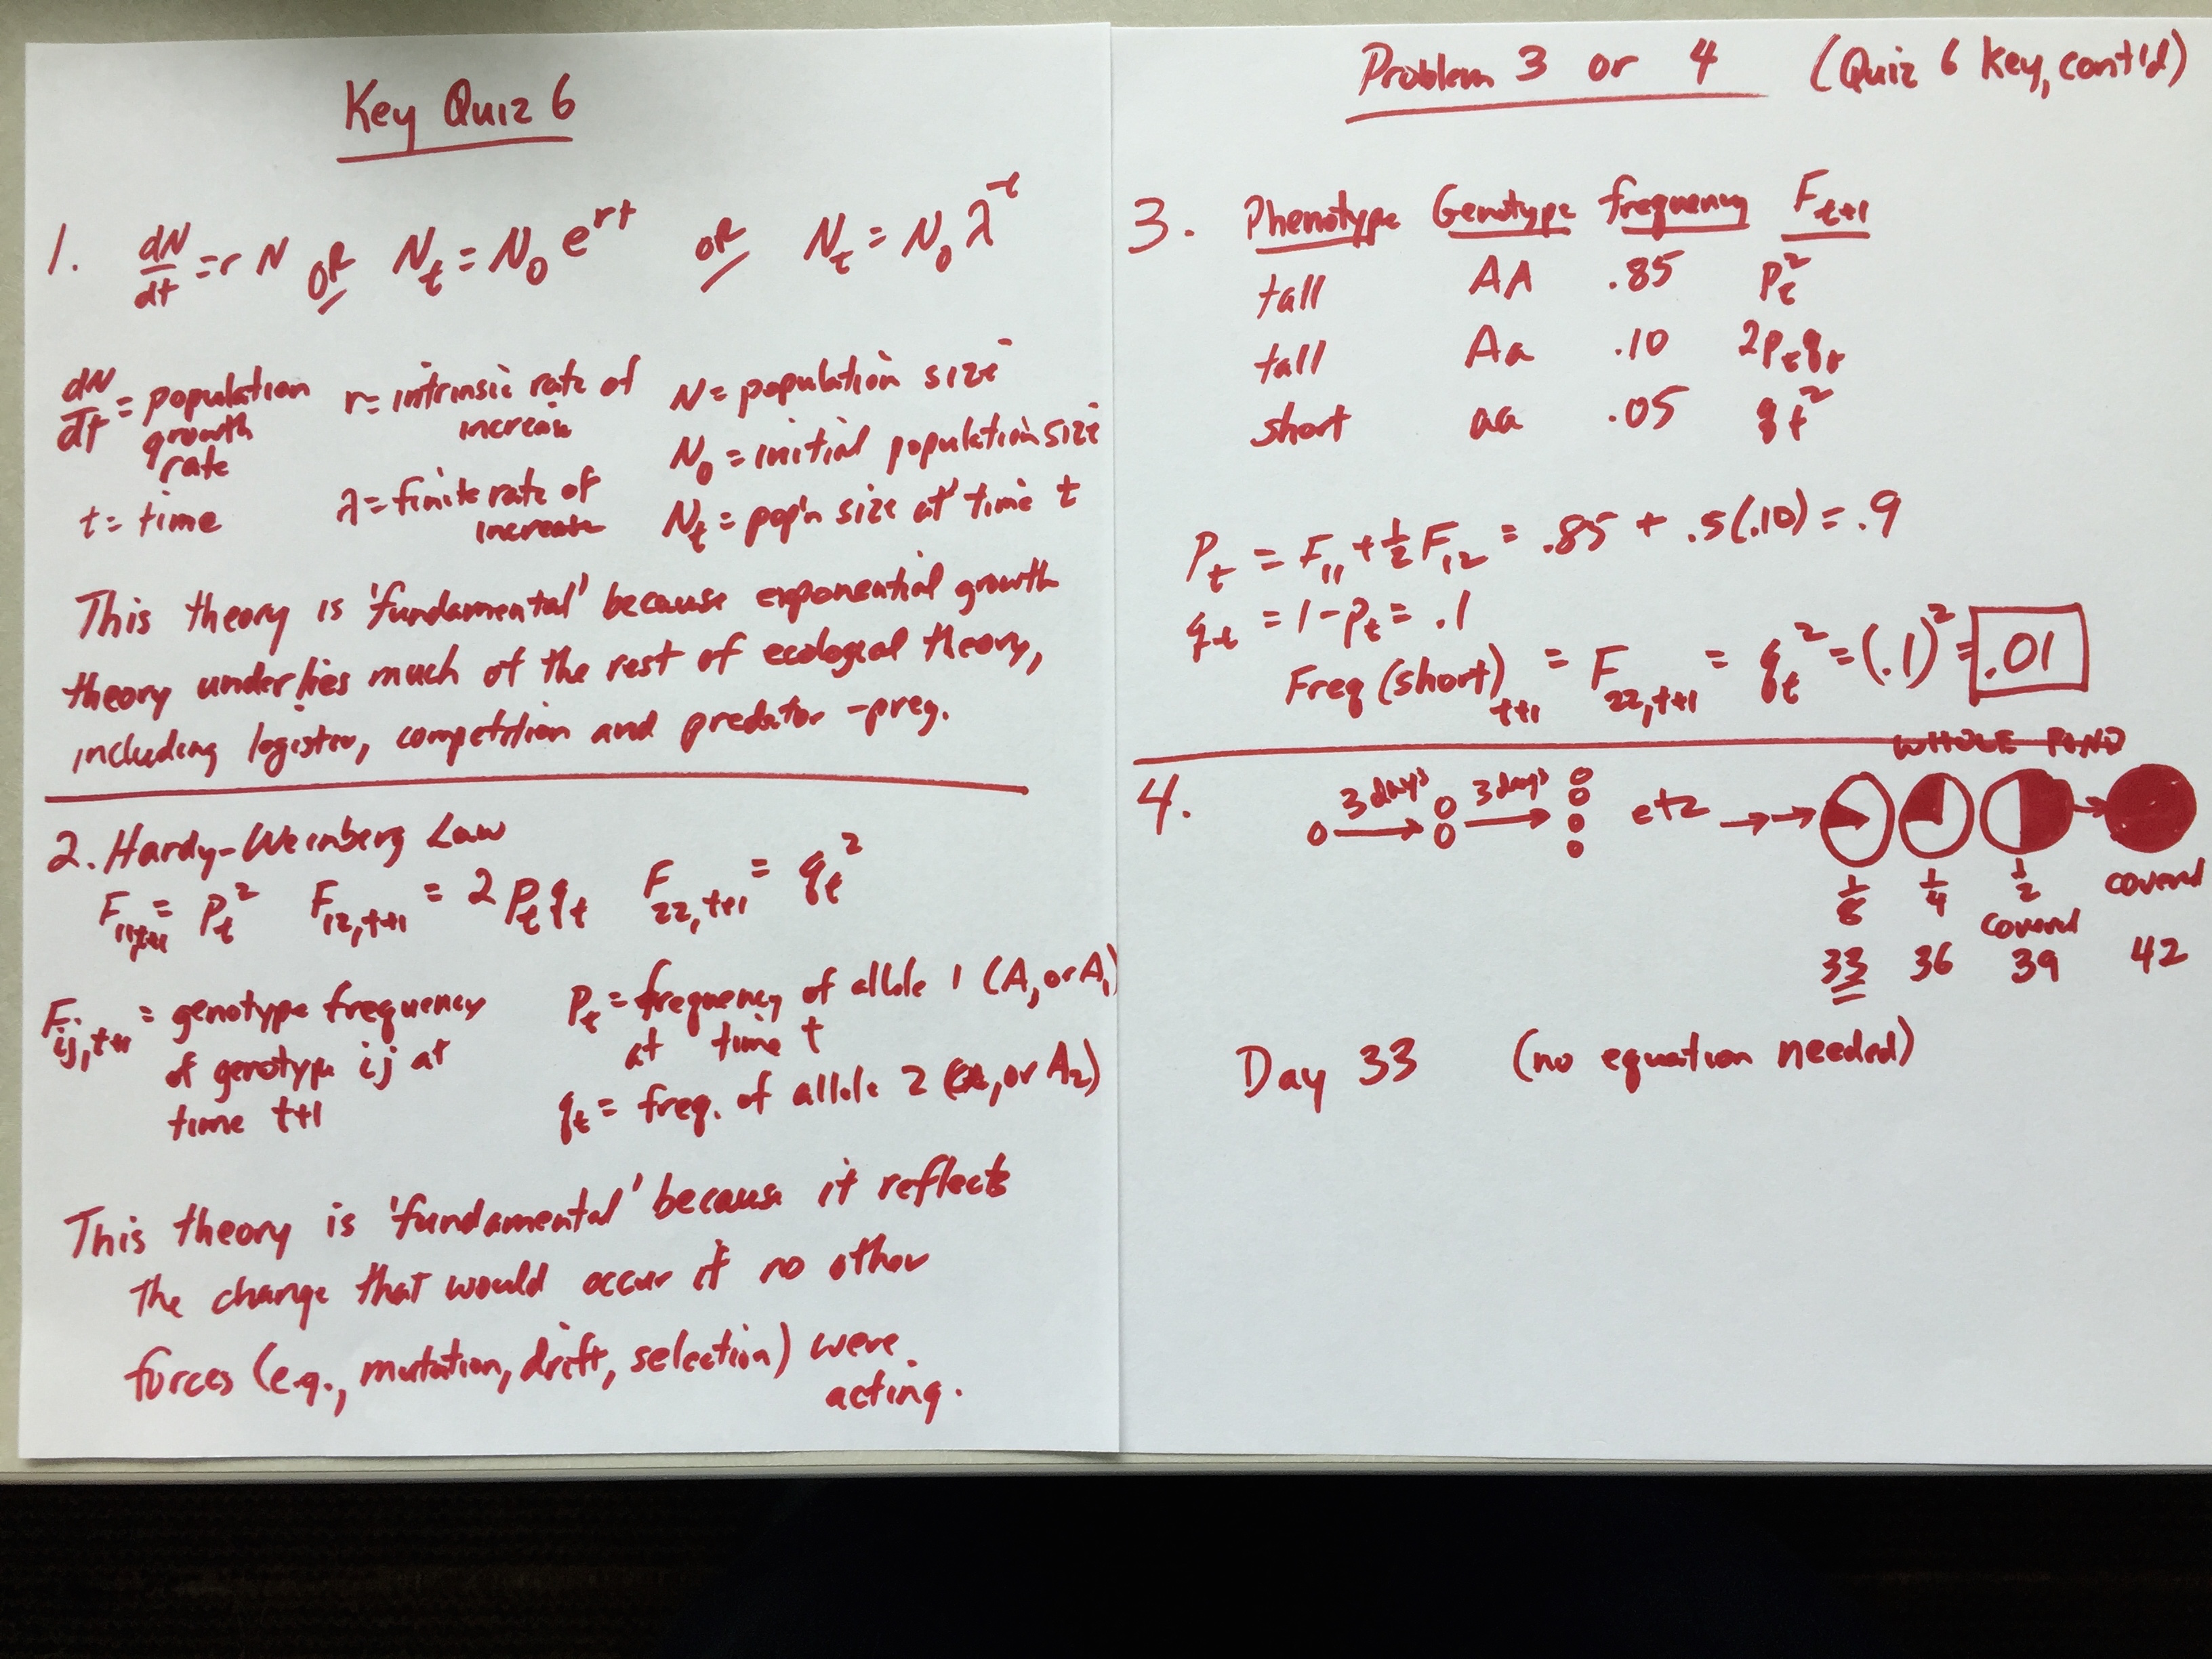 Key Quiz 6
1. dN/dt = r N OR N_t = N_0 e^rt OR N_t = N_0 λ^t
dN/dt = population growth rate
r = intrinsic rate of increase
N = population size
N_0 = initial population size
t = time
λ = finite rate of increase
N_t = pop'n size at time t
This theory is 'fundamental' because exponential growth
theory underlies much of the rest of ecological theory,
including logistic, competition and predator-prey.
2. Hardy-Weinberg Law
F_11,t+1 = p_t^2 F_12,t+1 = 2 p_t q_t F_22,t+1 = q_t^2
F_ij,t+1 = genotype frequency
of genotype ij at
time t+1
p_t = frequency of allele 1 (A, or A_1)
at time t
q_t = freq. of allele 2 (a, or A_2)
This theory is 'fundamental' because it reflects
the change that would occur if no other
forces (e.g., mutation, drift, selection) were
acting.
Problem 3 or 4 (Quiz 6 Key, cont'd)
3. Phenotype Genotype frequency F_t+1
tall AA .85 p_t^2
tall Aa .10 2p_t q_t
short aa .05 q_t^2
P_t = F_11 + 1/2 F_12 = .85 + .5(.10) = .9
q_t = 1 - p_t = .1
Freq (short)_t+1 = F_22,t+1 = q_t^2 = (.1)^2 = .01
WHOLE POND
4. 3 days 3 days etc
1/8 1/4 1/2 covered covered
33 36 39 42
Day 33 (no equation needed)